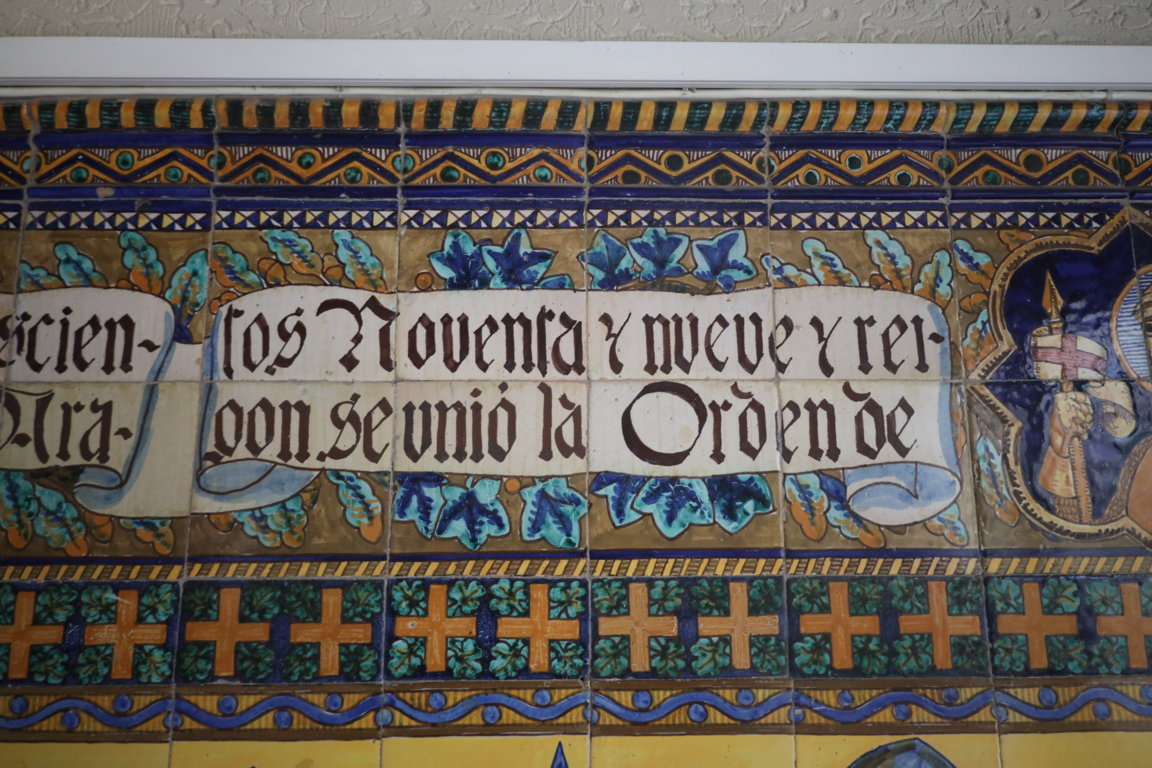 scien-tos Noventa y nueve y rei-
Ara-gon se unió la Orden de